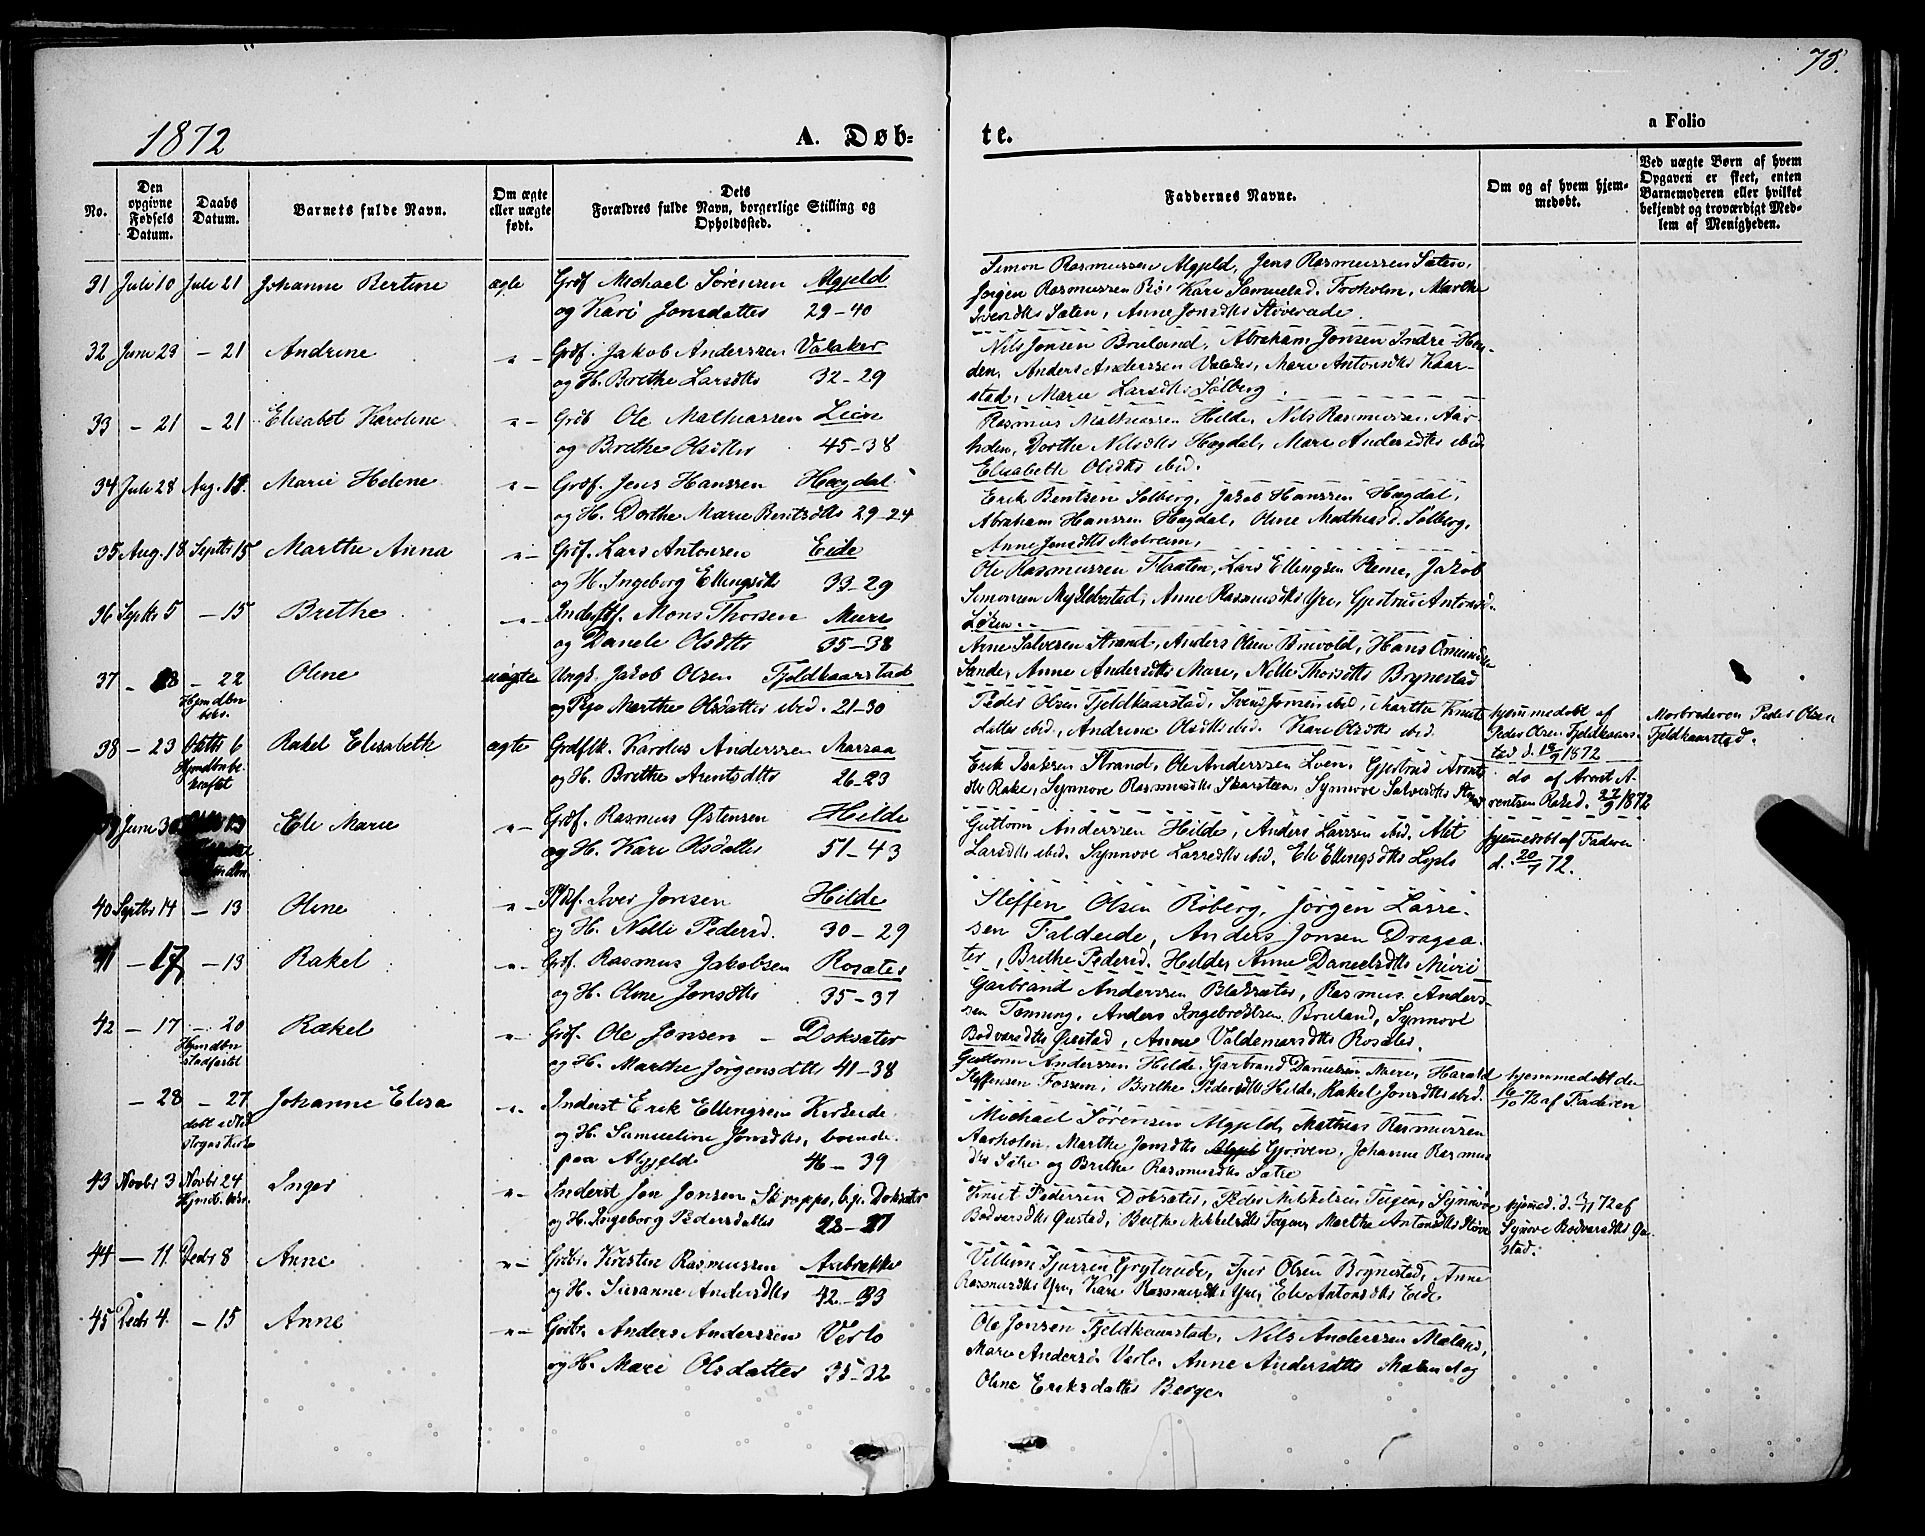 75.
1872
A. Døb-
te.
a Folio
No.
Den opgivne Fødsels Datum.
Daabs Datum.
Barnets fulde Navn.
Om ægte eller uægte født.
Dets
Forældres fulde Navn, borgerlige Stilling og
Opholdssted.
Faddernes Navne.
Om og af hvem hjem-
medøbt.
Ved uægte Børn af hvem
Opgaven er skeet, enten
Barnemoderen eller hvilket
bekjendt og troværdigt Med-
lem af Menigheden.
31 Juli 10 Juli 21 Johanne Bertine ægte Grdf. Michael Sørensen Algjeld
og Kari Jonsdatter 29-40
Simon Rasmussen Algjeld, Jens Rasmussen Sæten,
Jørgen Rasmussen Bø, Kari Samuelsd. Froholm, Marthe
Sæten, Anne Jonsdtr Støverade.
32 Juni 29 - 21 Andrine -"- Grdf. Jakob Anderssen Valaker
og H. Brethe Larsdtr 32-29
Nils Jonsen Bruland, Abraham Jonsen Indre-Hau-
den, Anders Anderssen Valaker, Mari Antonsdtr Kaar-
stad, Marie Larsdtr Sølberg
33 - 21 - 21 Elisabet Karoline -"- Grdb Ole Mathiassen Leiv
og Brethe Olsdtr 45-38
Rasmus Mathiassen Hilde, Nils Rasmussen Aar-
holen, Dorthe Nilsdtr Hagdal, Mari Andersdtr ibid
Elisabeth Olsdtr ibid.
34 Juli 28 Aug. 11. Marie Helene -"- Grdf. Jens Hanssen Hagdal
og H. Dorthe Marie Bentsdtr 29-24
Erik Bentsen Sølberg, Jakob Hanssen Hagdal,
Abraham Hanssen Hagdal, Oline Mathiasd. Sølberg,
Anne Jonsdtr
35 Aug. 18 Septbr 15 Marthe Anna -"- Grdf. Lars Antonsen Eide
og H. Ingeborg Ellingsdtr 33-29
Ole Rasmussen Flaaten, Lars Ellingsen Reme, Jakob
Simonsen Myklebostad, Anne Rasmusdtr Yre, Gjertrud Antonsd.
Løken.
36 Septbr 5 - 15 Brethe -"- Inderstf. Mons Thorsen Mure
og Danele Olsdtr 35-38
Arne Salvesen Strand, Anders Olsen Brævold, Hans
Sande, Anne Andersdtr Mare, Nille Thorsdtr Brynestad
37 - 18 - 22 Oline uægte Ungk. Jakob Olsen Fjeldkaarstad
Hjmdbn
bekr.
og Pige Marthe Olsdatter ibid. 21-30
Peder Olsen Fjeldkaarstad, Svend Jonsen ibid, Marthe Knuts-
datter ibid, Andrine Olsdtr ibid. Kari Olsdtr ibid.
hjemmedøbt af
Peder Olsen Fjeldkaars-
tad d. 19/9 1872
Morbroderen Peder Olsen
Fjeldkaarstad.
38 - 23 Octbr 6 Rakel Elisabeth ægte Grdflk. Karolus Anderssen Marsaa
Hjmdbn be-
kræftet
og H. Brethe Arentsdtr 26-23
Erik Isaksen Strand, Ole Anderssen Loen, Gjertrud Arent-
dtr Rake, Synnøve Rasmusdtr Skarsten, Synnøve Salvesdtr Strand
do af Arent A-
rentsen Rake d. 27/9 1872
39 Juni 30 13 Ele Marie -"- Grdf. Rasmus Østensen Hilde
og H. Kari Olsdatter 51-43
Guttorm Anderssen Hilde, Anders Larssen ibid. Alet
Larsdtr ibid. Synnøve Larsedtr ibid, Ele Ellingsdtr
hjemmedøbt af Faderen
d. 20/7 72.
40 Septbr 14 - 13 Oline -"- Grdf. Iver Jonsen Hilde
og H. Nille Pedersd. 30-29
Steffen Olsen Roberg, Jørgen Larse-
sen Faldeide, Anders Jonsen Dragsæ-
ter, Brethe Pedersd. Hilde, Anne Danielsdtr
41 - 17 - 13 Rakel -"- Grdf. Rasmus Jakobsen Rosæter
og H. Oline Jonsdtr 35-31
Garbrand Anderssen Blaksæter, Rasmus Anders-
sen Tenning, Anders Ingebrektsen Bruland, Synnøve
Bødvarsdtr Gustad, Anne Valdemarsdtr Rosæter.
42 - 17 - 20 Rakel -"- Grdf. Ole Jonsen - Doksæter
Hjmdbn
stadfæstet
og H. Marthe Jørgensdtr 41-38
Guttorm Anderssen Hilde, Garbrand Danielsen Mure, Harald
Steffensen Fossen, Brethe Pedersdtr Hilde, Rakel Jonsdtr ibid.
hjemmedøbt den
6/10 72 af Faderen
- 28 - 27 Johanne Elisa -"- Inderst Erik Ellingsen Kirkeide
døbt i Ned
strynskirke
og H. Samueline Jonsdtr, boende
paa Algjeld 46-39
Michael Sørensen Algjeld, Mathias Rasmussen
Aarholen, Marthe Jonsdtr Gjørven, Johanne Rasmus
dtr Sætre og Brethe Rasmusdtr Sætre
43 Novbr 3 Novbr 24 Inger -"- Inderst Jon Jonsen Skreppe, b.p. Doksæter
Hjmdb. bekr.
og H. Ingeborg Pedersdatter 28-27
Knut Pedersen Doksæter, Peder Mikkelsen Tugen, Synnøve
Bødversdtr Gustad, Brethe Mikkelsdtr Tugen, Marthe Antonsdtr Støve
hjemmed. d. 3/11 72 af
Synnøve Bødvarsdtr Gu-
stad.
44 - 11 Decbr 8 Anne -"- Grdbr. Kirsten Rasmussen Aabrekke
og H. Susanne Andersdtr 42-33
Villum Sjursen Gryterude, Iver Olsen Brynestad, Anne
Rasmusdtr Yre, Kari Rasmusdtr Yre, Ele Antonsdtr Eide
45 Decbr 4. - 15 Anne -"- Grdbr. Anders Anderssen Verlo
og H. Mari Olsdatter 35-32
Ole Jonsen Fjeldkaarstad, Nils Anderssen Mæland,
Mari Andersd. Verlo, Anne Andersdtr og
Oline Eriksdatter Berge